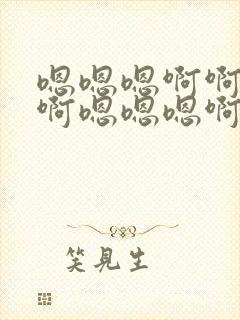 嗯嗯嗯啊啊
啊嗯嗯嗯啊
笑見生